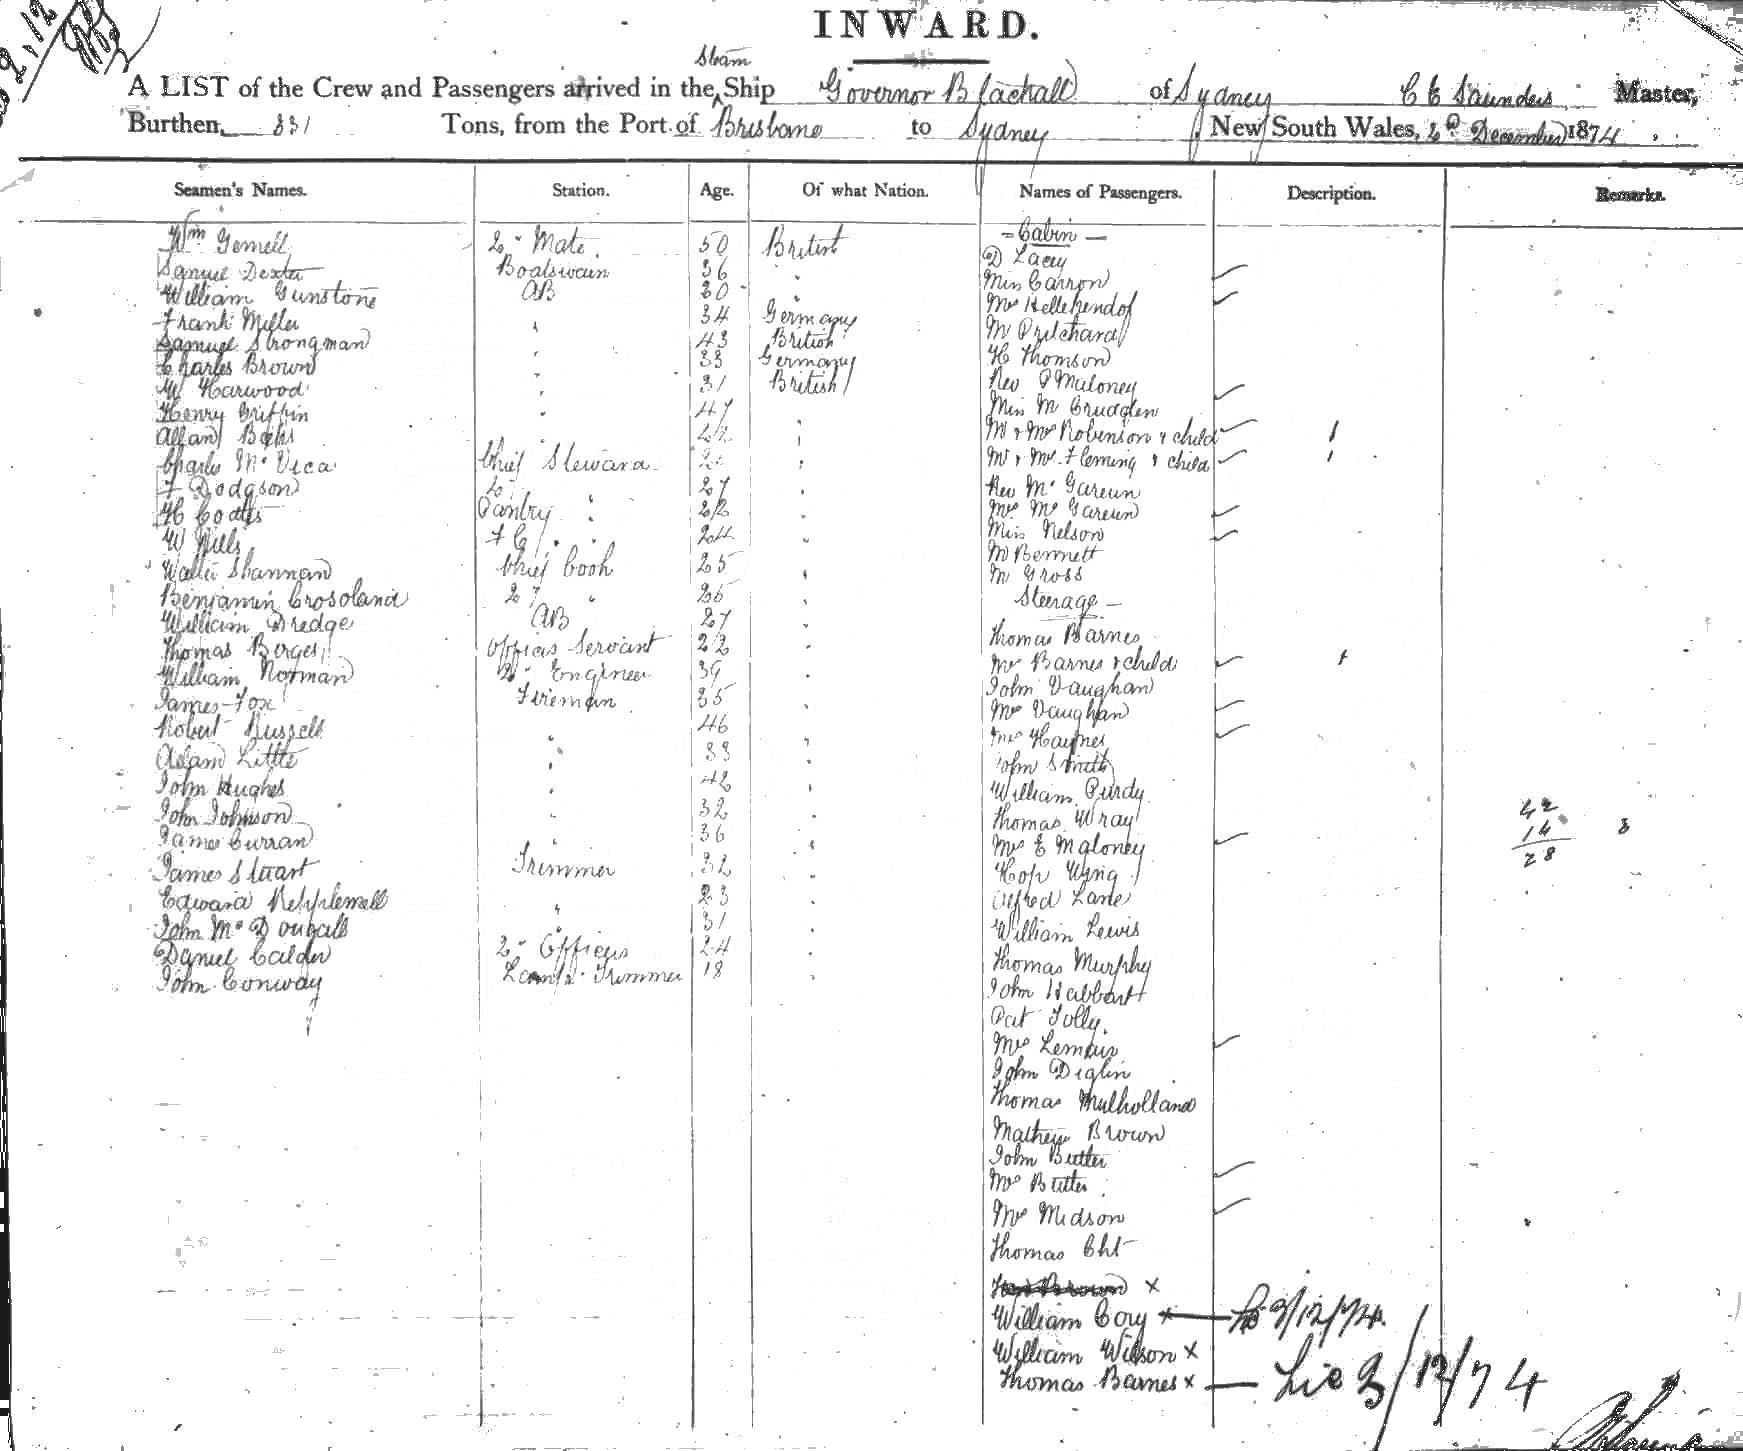 INWARD.
Steam
A LIST of the Crew and Passengers arrived in the Ship Governor Blackall of Sydney C E Saunders Master,
Burthen, 331 Tons, from the Port of Brisbane to Sydney, New South Wales, 2d December 1874
Seamen's Names. Station. Age. Of what Nation. Names of Passengers. Description. Remarks.
- Cabin -
Wm Gemell 2d Mate 50 British D Lacey
Samuel Dexter Boatswain 36 " Miss Carron
William Gunstone AB 30 " Mrs
Frank Miller " 34 Germany Mr Pritchard
Samuel Strongman " 43 British H Thomson
Charles Brown " 33 Germany Rev P Maloney
W Harwood " 31 British Miss M
Henry Griffin " 47 " Mr & Mrs Robinson & child 1
Allan " " Mr & Mrs Fleming & child 1
Charles Chief Steward " Rev
F Dodgson 2d " 27 " Mrs
H Coates Pantry " 22 " Miss Nelson
W Mills F C " 24 " Mr Bennett
Walter Shannan Chief Cook 25 " Mr Gross
Benjamin Crosoland 2d " 26 " Steerage -
William Dredge AB 27 " Thomas Barnes
Thomas Officers Servant 22 " Mrs Barnes & child 1
William Norman 2d Engineer 39 " John Vaughan
James Fox Fireman 35 Mrs Vaughan
Robert Russell " 46 " Mrs Haynes
Adam Little " 33 " John Smith
John Hughes " 42 " William Purdy
John Johnson " 32 " Thomas Wray
James Curran " 36 " Mrs E Maloney
James Stuart Trimmer 32 " Hop Wing
Edward " 23 " Alfred Lane
John McDougall " 31 " William Lewis
Daniel Calder 2d Officer 24 " Thomas Murphy
John Conway Lamp Trimmer 18 " John
Pat Jolly
Mrs
John
Thomas Mulholland
Mathew Brown
John Butler
Mrs Butler
Mrs Midson
Thomas
Brown x
William Cory x
William Wilson x
Thomas Barnes x
42
14 3
28
3/12/74.
3/12/74